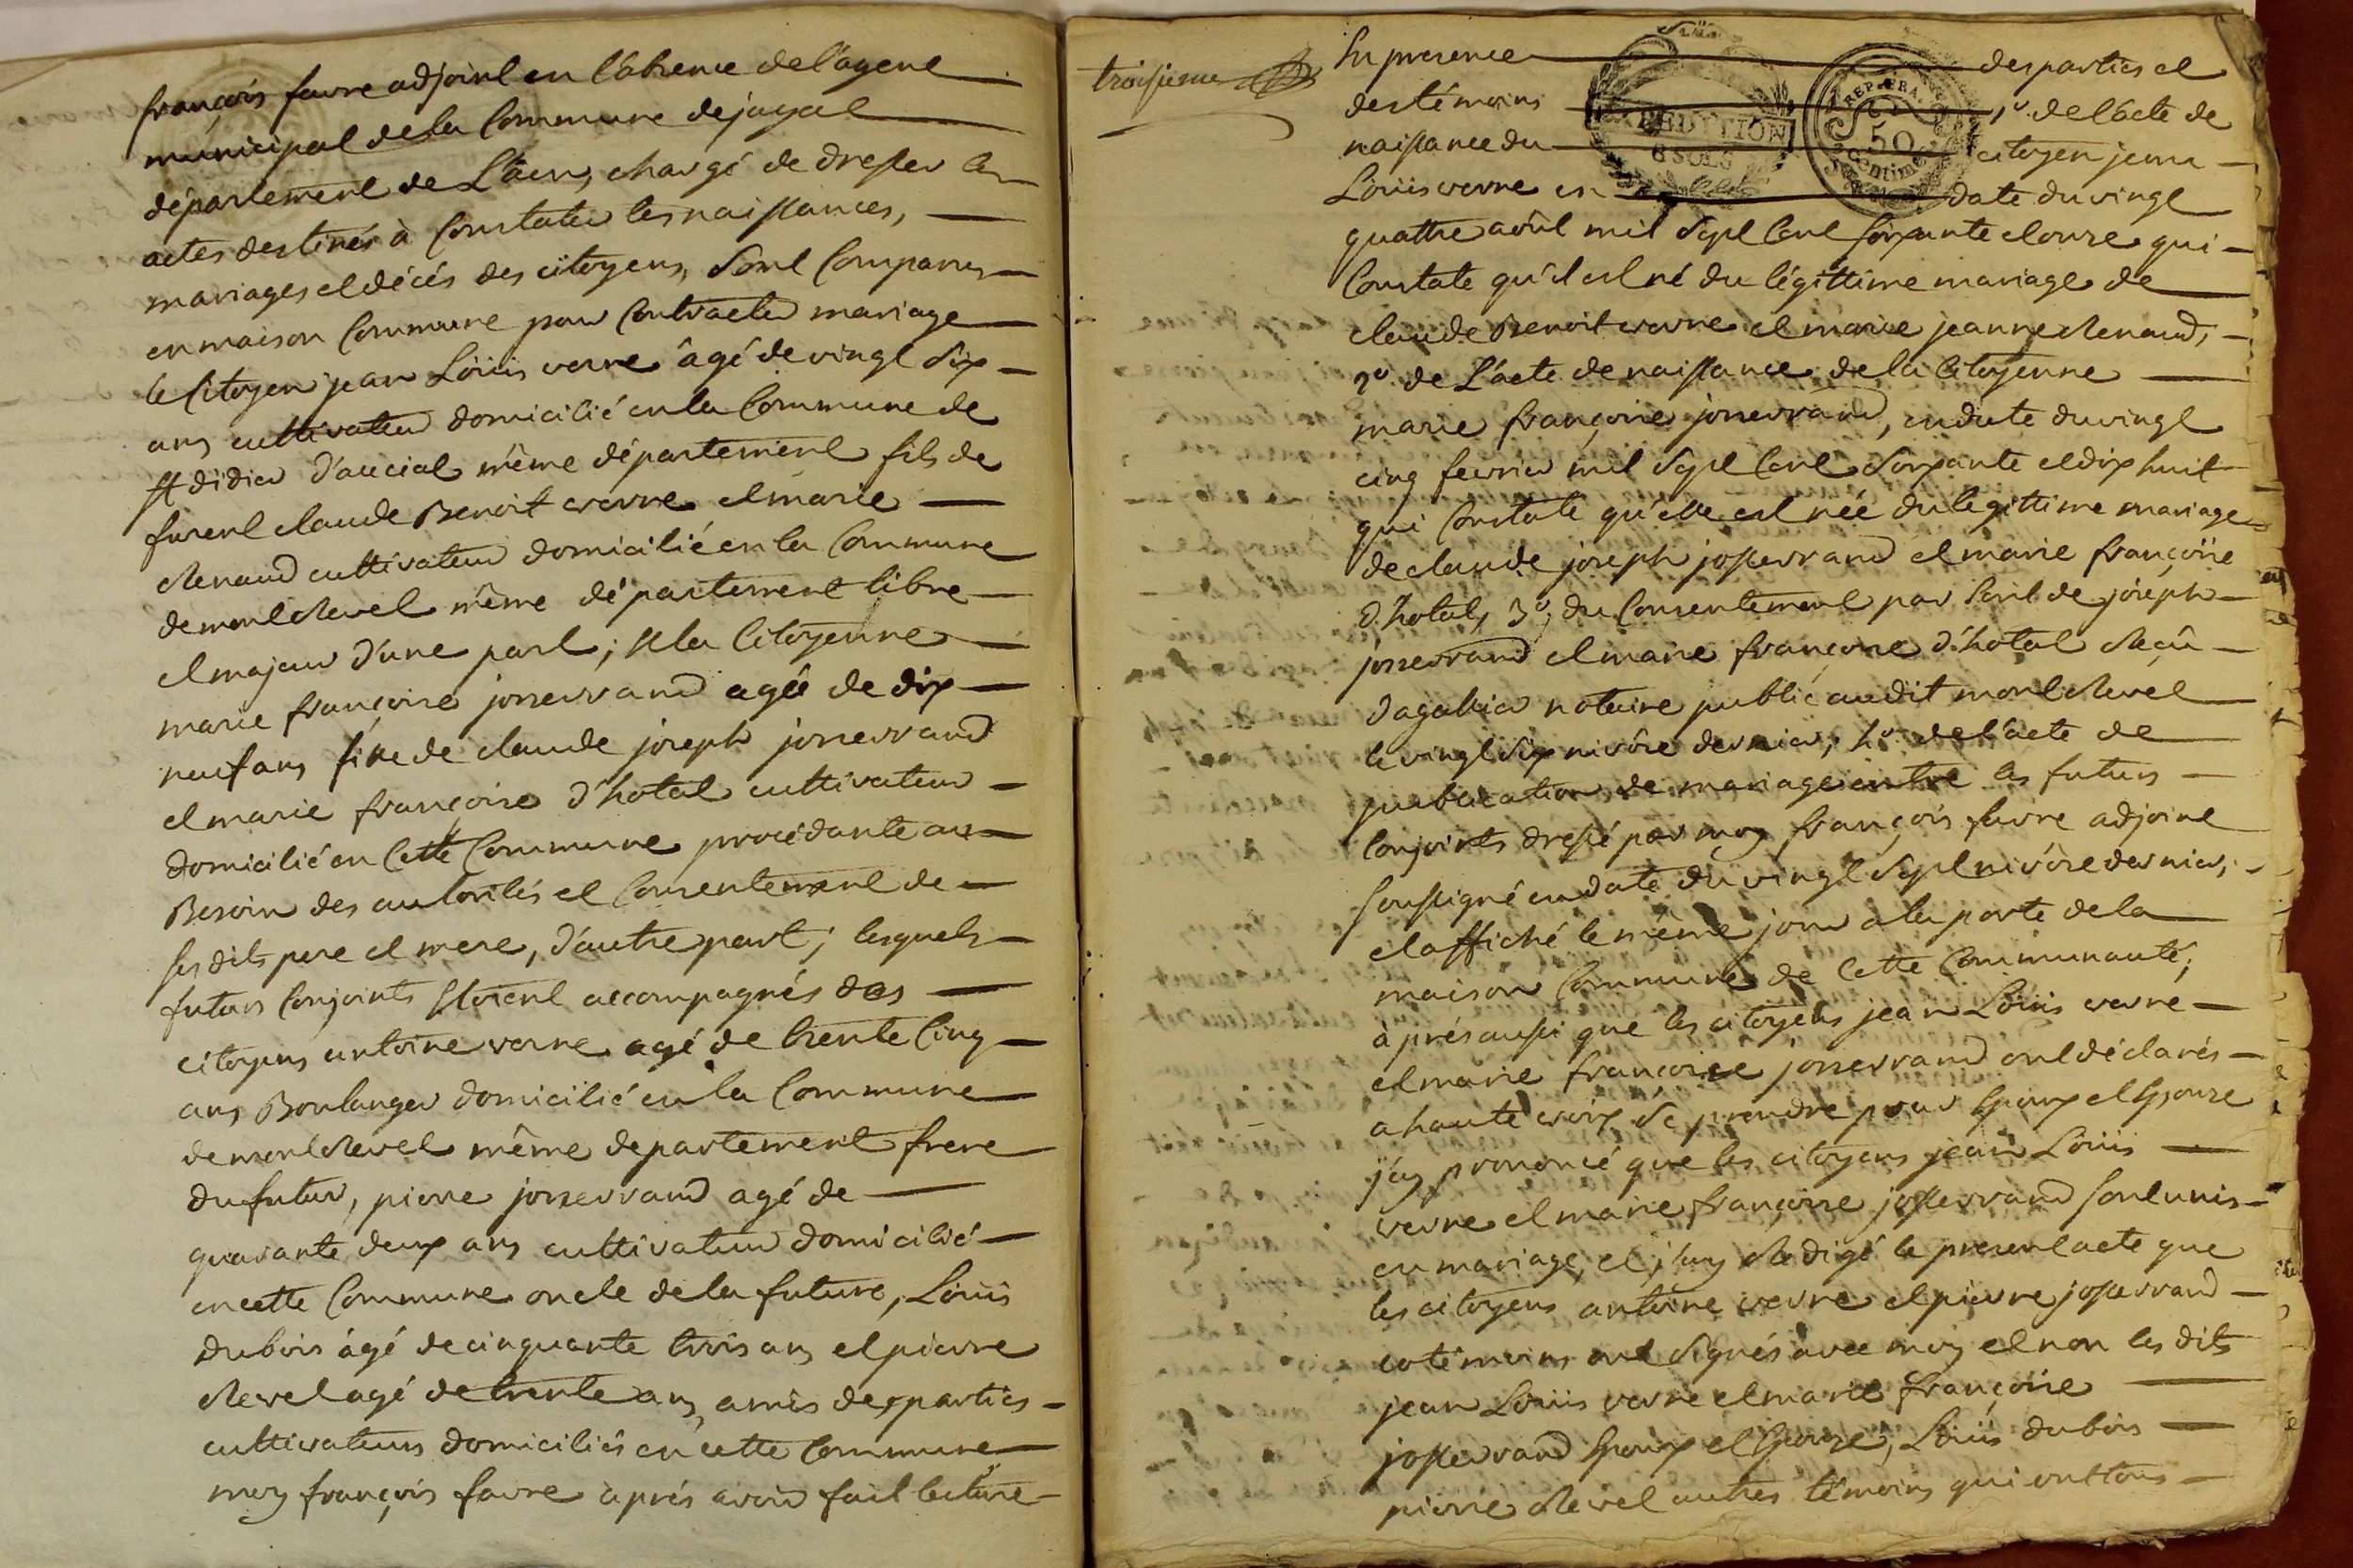 françois favre adjoint en l'absence de l'agent
municipal de la Commune de jayat
département de L'ain, chargé de dresser les
actes destinés à Constater les naissances,
mariages et décés des citoyens, Sont Comparus
en maison Commune pour Contracter mariage
le Citoyen jean Loüis verne âgé de vingt Six
ans cultivateur domicilié en la Commune de
st didier d'auciat même département fils de
furent claude Benoit verne et marie
Renaud cultivateur domicilié en la Commune
de mont Revel même département libre
et majeur d'une part; et la Citoyenne
marie françoise josserrand agée de dix
neuf ans fille de claude joseph josserrand
et marie françoise d'hotal cultivateur
domicilié en Cette Commune procédante au
Besoin des autorités et Consentement de
ses dits pere et mere, d'autre part; lesquels
futurs Conjoints étoient accompagnés des
citoyens antoine verne agé de trente Cinq
ans Boulanger domicilié en la Commune
de mont Revel même departement frere
du futur, pierre josserrand agé de
quarante deux ans cultivateur domicilié
en cette Commune oncle de la future, Loüis
dubois àgé de cinquante trois ans et pierre
Revel agé de trente ans, amis des parties
cultivateurs domiciliés en cette Commune
moy françois favre après avoir fait lecture
troisieme
En presence des parties et
des témoins 1.º de l'acte de
naissance du citoyen jean
Loüis verne en date du vingt
EXPEDITION
8 SOLS
REP. FRA.
50
Centime
quattre avril mil Sept Cent soixante et onze qui
Constate qu'il est né du légittime mariage de
claude Benoit verne et marie jeanne Renaud,
2º. de L'acte de naissance de la Citoyenne
marie françoise josserrand, en date du vingt
cinq fevrier mil Sept Cent Soixante et dix huit
qui Constate qu'elle est née du legittime mariage
de claude joseph josserrand et marie françoise
d'hotal, 3º. du Consentement par écrit de joseph
josserrand et marie françoise d'hotal Reçû
dagallier notaire public audit mont Revel
le vingt Six nivôse dernier, 4º. de l'acte de
publication de mariage entre les futurs
Conjoints dressé par moy françois favre adjoint
soussigné en date du vingt Sept nivôse dernier,
et affiché le même jour a la porte de la
maison Commune de Cette Communauté;
à près aussi que les citoyens jean Loüis verne
et marie françoise josserrand ont déclarés
a haute voix Se prendre pour Epoux et Epouse
j'ay prononcé que les citoyens jean Loüis
verne et marie françoise josserrand sont unis
en mariage, et j'ay Redigé le present acte que
les citoyens antoine verne et pierre josserrand
co témoins ont Signés avec moy et non les dits
jean Loüis verne et marie françoise
josserrand Epoux et Epouse, Loüis dubois
pierre Revel autres témoins qui ont tous